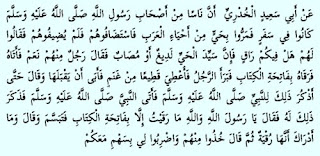 عَنْ أَبِي سَعِيدٍ الْخُدْرِيِّ أَنَّ نَاسًا مِنْ أَصْحَابِ رَسُولِ اللَّهِ صَلَّى اللَّهُ عَلَيْهِ وَسَلَّمَ
كَانُوا فِي سَفَرٍ فَمَرُّوا بِحَيٍّ مِنْ أَحْيَاءِ الْعَرَبِ فَاسْتَضَافُوهُمْ فَلَمْ يُضِيفُوهُمْ فَقَالُوا
لَهُمْ هَلْ فِيكُمْ رَاقٍ فَإِنَّ سَيِّدَ الْحَيِّ لَدِيغٌ أَوْ مُصَابٌ فَقَالَ رَجُلٌ مِنْهُمْ نَعَمْ فَأَتَاهُ
فَرَقَاهُ بِفَاتِحَةِ الْكِتَابِ فَبَرَأَ الرَّجُلُ فَأُعْطِيَ قَطِيعًا مِنْ غَنَمٍ فَأَبَى أَنْ يَقْبَلَهَا وَقَالَ حَتَّى
أَذْكُرَ ذَلِكَ لِلنَّبِيِّ صَلَّى اللَّهُ عَلَيْهِ وَسَلَّمَ فَأَتَى النَّبِيَّ صَلَّى اللَّهُ عَلَيْهِ وَسَلَّمَ فَذَكَرَ
ذَلِكَ لَهُ فَقَالَ يَا رَسُولَ اللَّهِ وَاللَّهِ مَا رَقَيْتُ إِلَّا بِفَاتِحَةِ الْكِتَابِ فَتَبَسَّمَ وَقَالَ وَمَا
أَدْرَاكَ أَنَّهَا رُقْيَةٌ ثُمَّ قَالَ خُذُوا مِنْهُمْ وَاضْرِبُوا لِي بِسَهْمٍ مَعَكُمْ